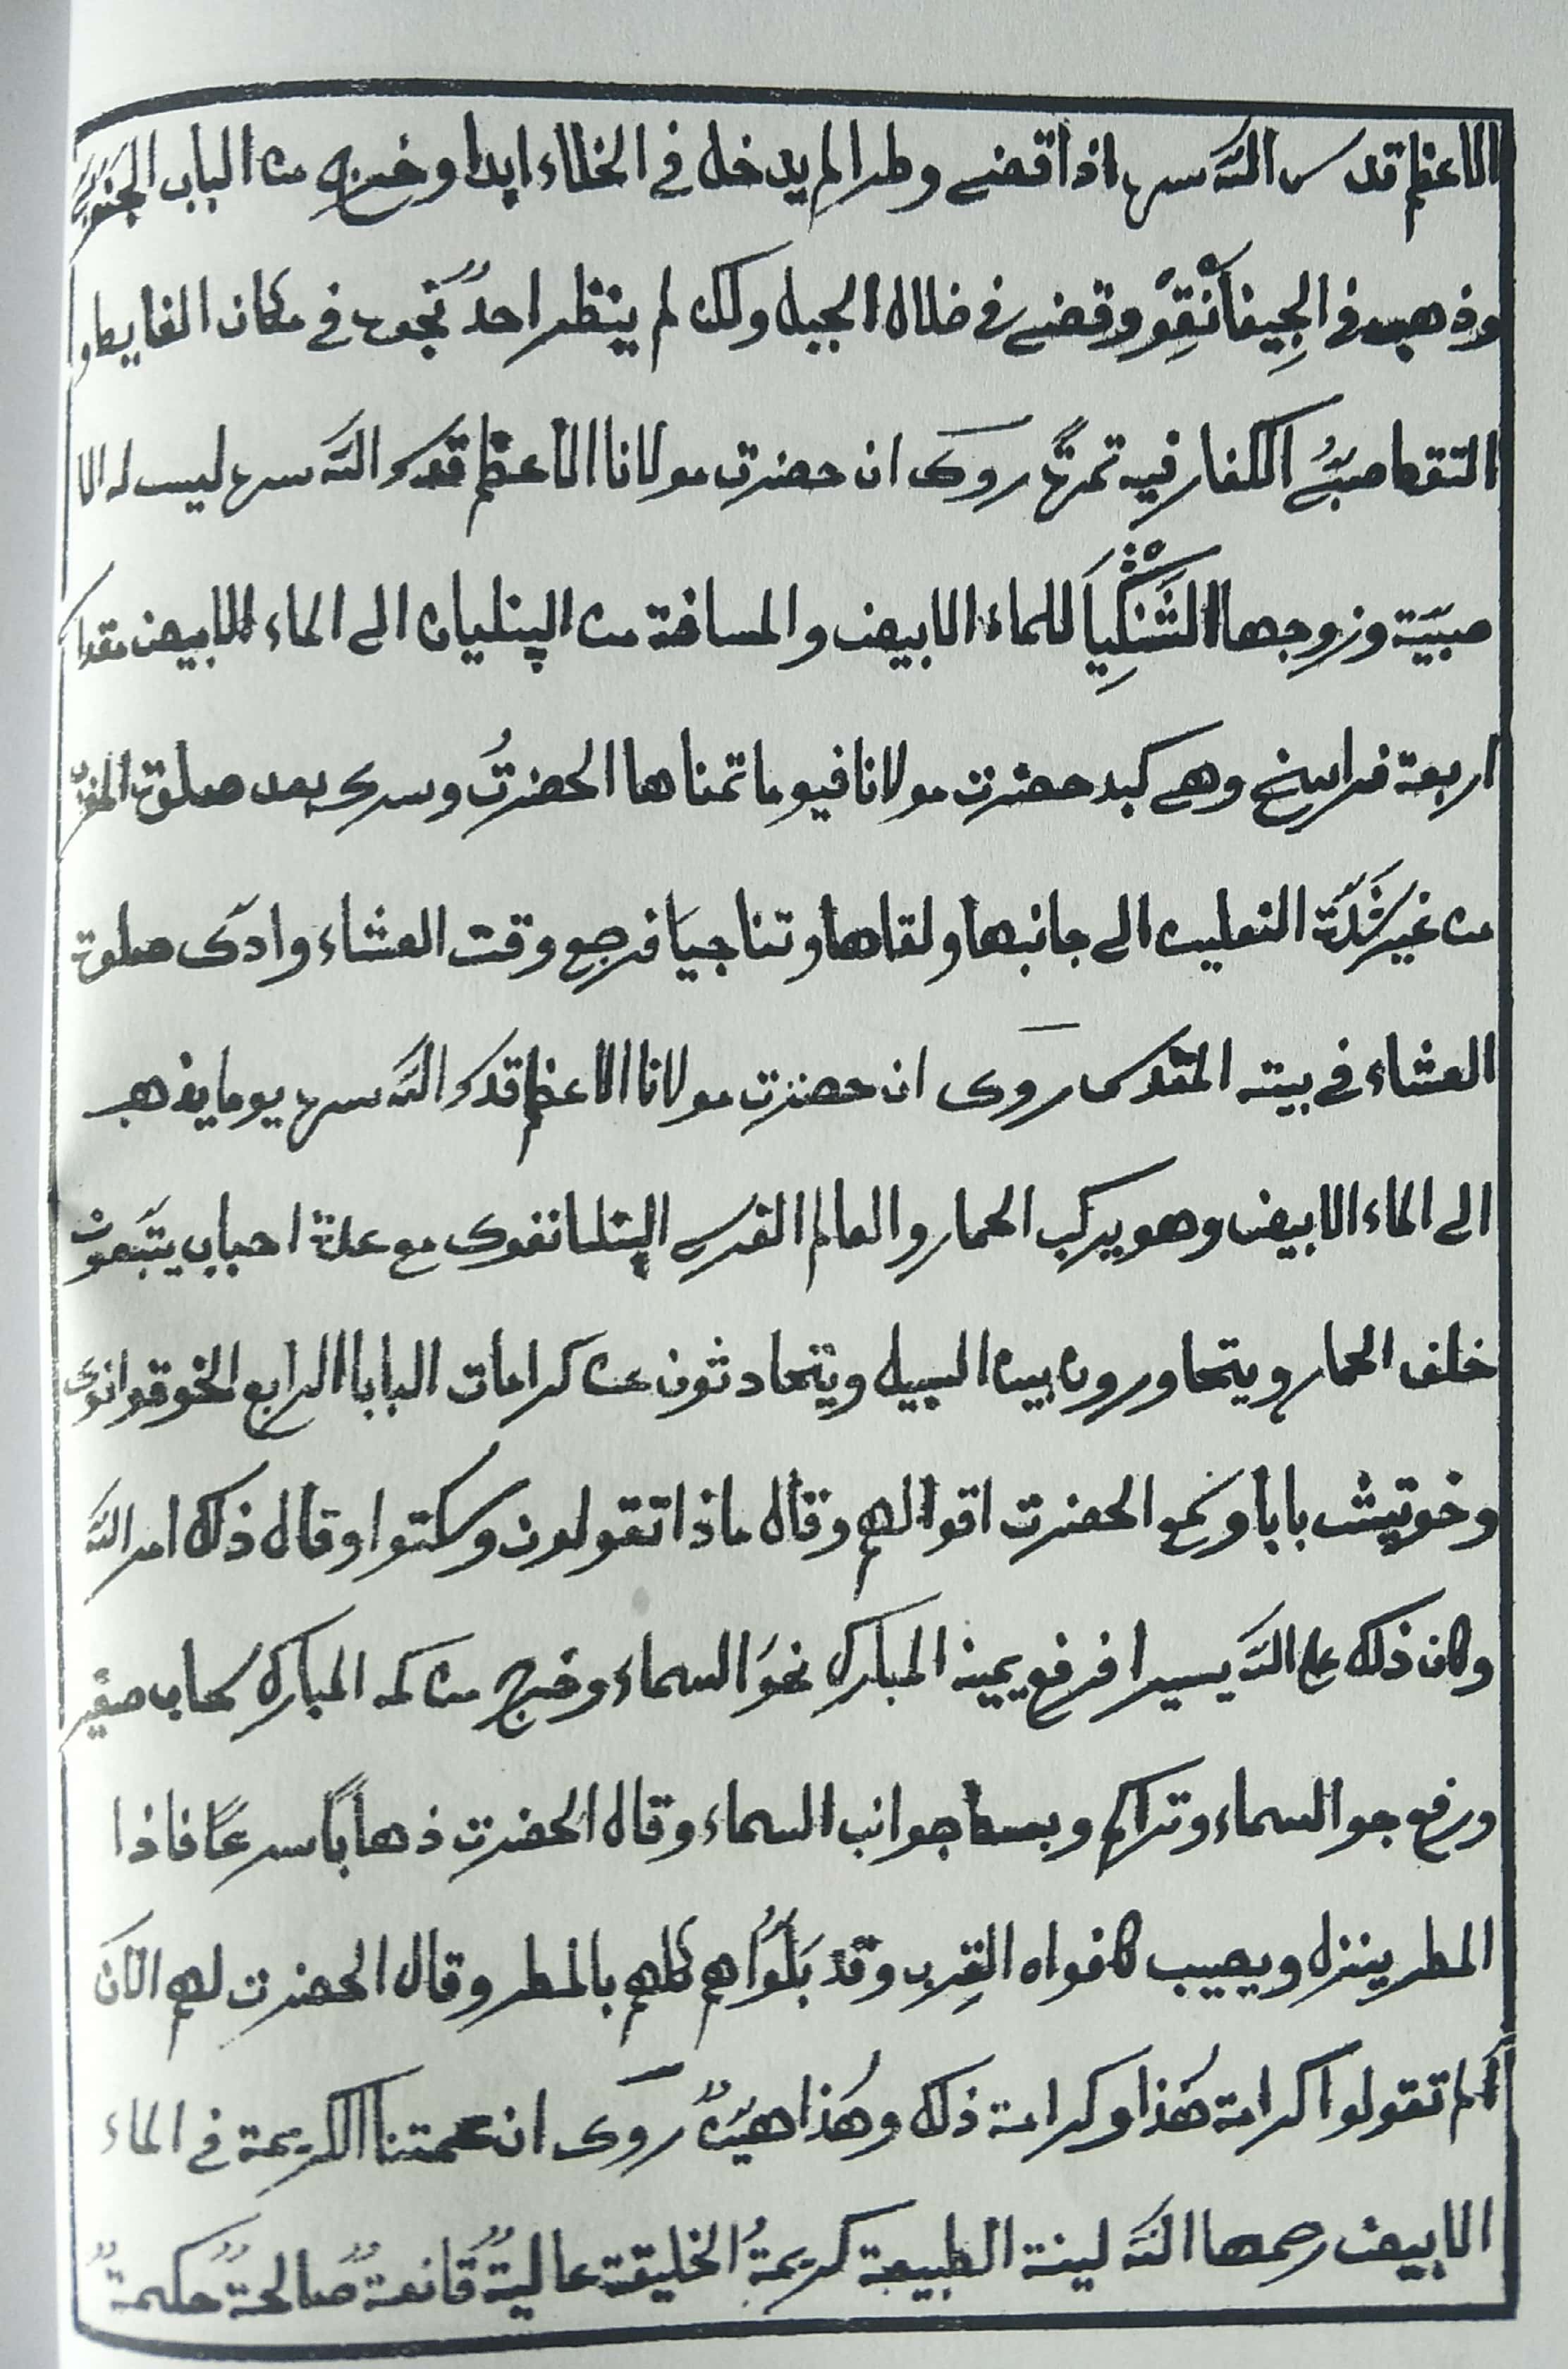 الاعظم قدس اللّه سره اذا قضى وطرا لم يدخل في الخلاء ابدا وخرج من الباب الجنوبيّ
وذهب في وقضى في خلال الجبل ولكن لم ينظر احدٌ نجوه في مكان الغايط و
التقط صبيُّ الكفار فيه تمرةً روى ان حضرت مولانا الاعظم قدس اللّه سره ليس له الا
صبيّة وزوجها للماء الابيض والمسافة من الپنليان الى الماء الابيض مقدا
اربعة فراسخ وهى كبد حضرت مولانا فيوما تمناها الحضرتُ وسرى بعد صلوة المغرب
من غير شَدّة النعلين الى جانبها ولقاها وتناجيا فرجع وقت العشاء وادّى صلوة
العشاء في بيته المقدس روى ان حضرت مولانا الاعظم قدس اللّه سره يوما يذهب
الى الماء الابيض وهو يركب الحمار والعالم مع عدة احباب يتّبعون
خلف الحمار ويتحاورون بين السبيل ويتحادثون عن كرامات البابا الرابع الخوقوانوى
بابا وسمع الحضرت اقوالهم وقال ماذا تقولون وسكتوا وقال ذلك امر اللّه
وكان ذلك على اللّه يسيرا فرفع يمينه المبارك نحوَ السماء وخرج من كمه المبارك سحاب صغير
ورفع جو السماء وتراكم وبسط جوانب السماء وقال الحضرت ذهابًا سرعًا فاذا
المطر ينزل ويصيب كافواه القِرب وقد بَلُّوا هم كلهم بالمطر وقال الحضرت لهم الآنَ
ألم تقولوا كرامة هٰذا وكرامة ذلك وهٰذا هيّنٌ روى ان عمتنا الكريمة في الماء
الابيض رحمها اللّه لينة الطبيعة كريمةُ الخليقة عاليةٌ قانعةٌ صالحةٌ حكيمةٌ